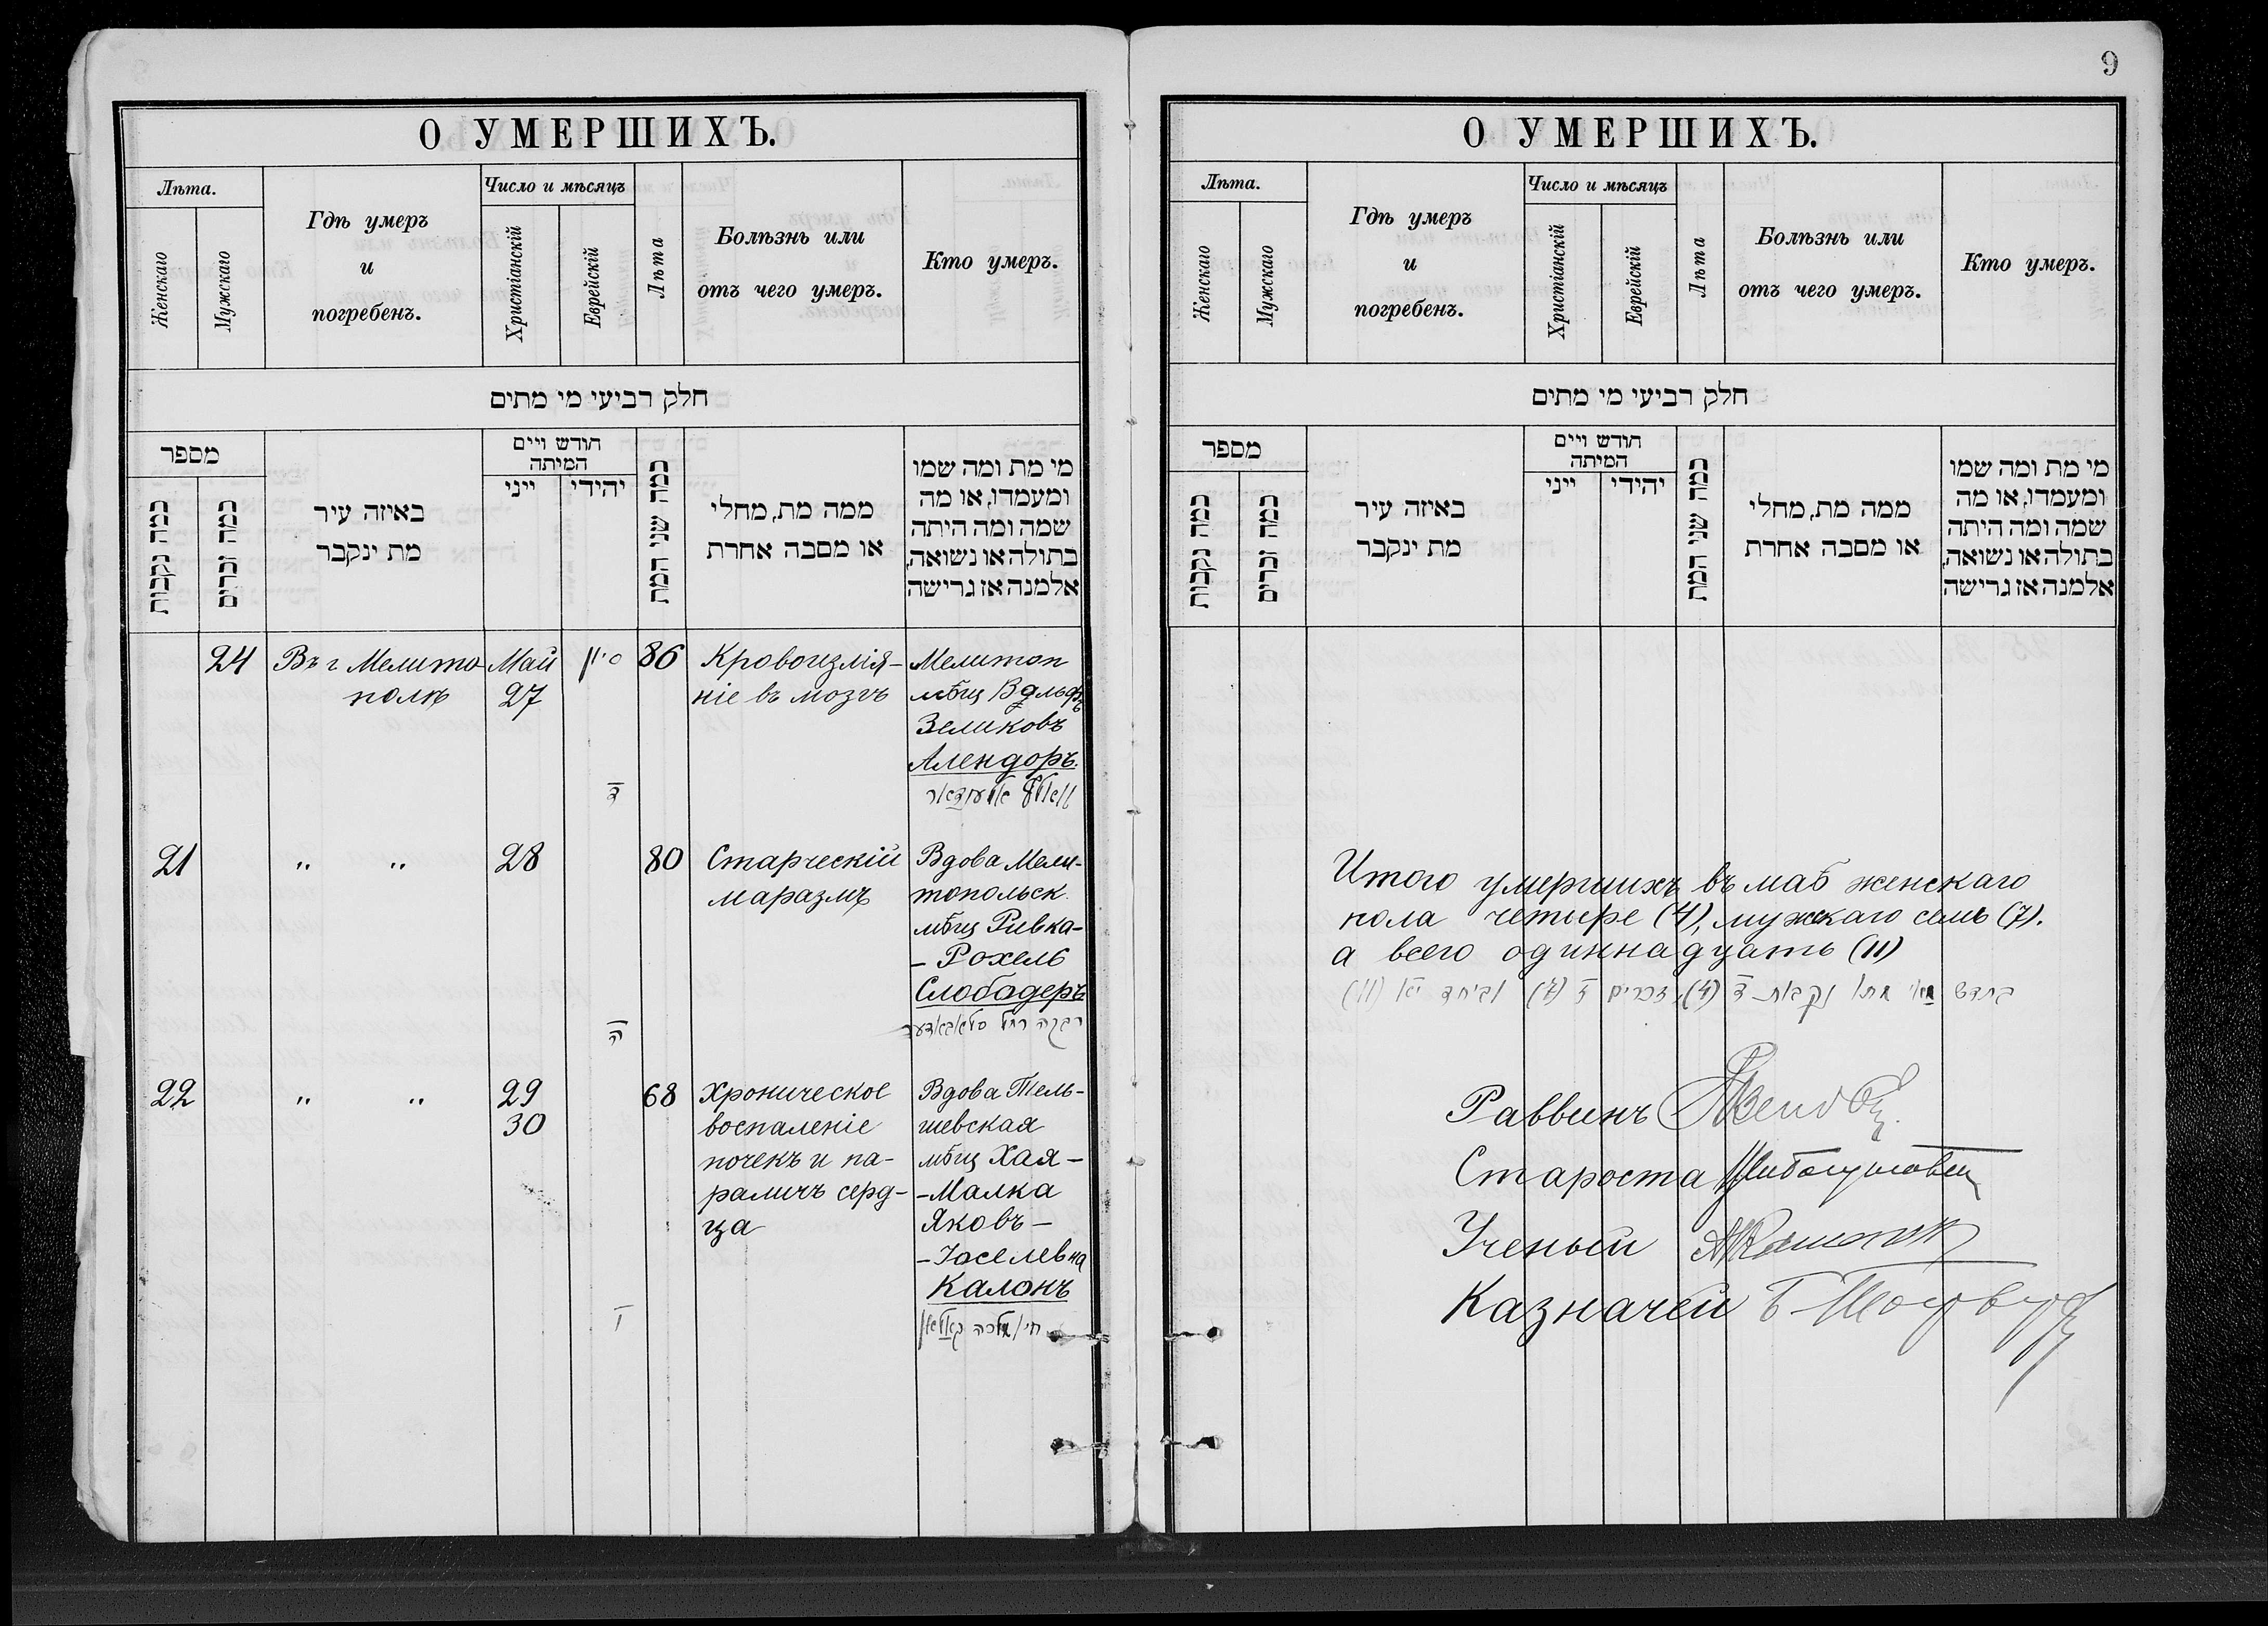 О УМЕРШИХЪ.
Лѣта.
Женскаго
Мужскаго
Гдѣ умеръ
и
погребенъ.
Число и мѣсяцъ
Христіанскій
Еврейскій
Лѣта
Болѣзнь или
отъ чего умеръ.
Кто умеръ.
חלק רביעי מי מתים
מספר
כמה נקבות
כמה זכרים
באיזה עיר
מת ינקבר
חודש ויים
המיתה
ייני
יהידי
כמה שני המת
ממה מת, מחלי
או מסבה אחרת
מי מת ומה שמו
ומעמדו, או מה
שמה ומה היתה
בתולה או נשואה,
אלמנה אז גרישה
24
Въ г Мелито
полѣ
Май
27
סיון
ד
86
Кровоизлія-
ніе въ мозгъ
Мелитоп
мѣщ Вольфъ
Зеликовъ
Алендоръ.
וואלף אלענדאר
21
" "
28
ה
80
Старческій
маразмъ
Вдова Мели-
топольск.
мѣщ Ривка-
- Рохель
Слободеръ
רבקה רחל סלאבאדער
22
" "
29
30
ו
68
Хроническое
воспаленіе
почекъ и па-
раличъ серд-
ца
Вдова Тель-
шевская
мѣщ Хая-
-Малка
Яковъ-
-Іоселевна
Калонъ
חי' מלכה קאלאן
9
О УМЕРШИХЪ.
Лѣта.
Женскаго
Мужскаго
Гдѣ умеръ
и
погребенъ.
Число и мѣсяцъ
Христіанскій
Еврейскій
Лѣта
Болѣзнь или
отъ чего умеръ.
Кто умеръ.
חלק רביעי מי מתים
מספר
כמה נקבות
כמה זכרים
באיזה עיר
מת ינקבר
חודש ויים
המיתה
ייני
יהידי
כמה שני המת
ממה מת, מחלי
או מסבה אחרת
מי מת ומה שמו
ומעמדו, או מה
שמה ומה היתה
בתולה או נשואה,
אלמנה אז גרישה
Итого умершихъ въ маѣ женскаго
пола четыре (4), мужскаго семь (7).
а всего одиннадцать (11)
בחדש מאי מתו נקבות ד (4), זכרים ז (7) וביחד יא (11)
Раввинъ
Староста
Ученый
Казначей